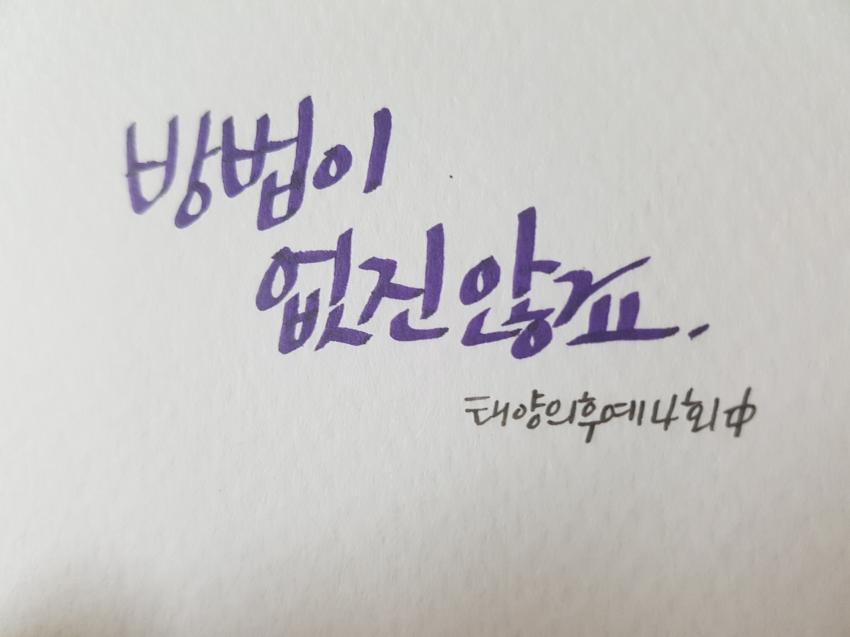 방법이
없진 않죠.
태양의후예 4회中